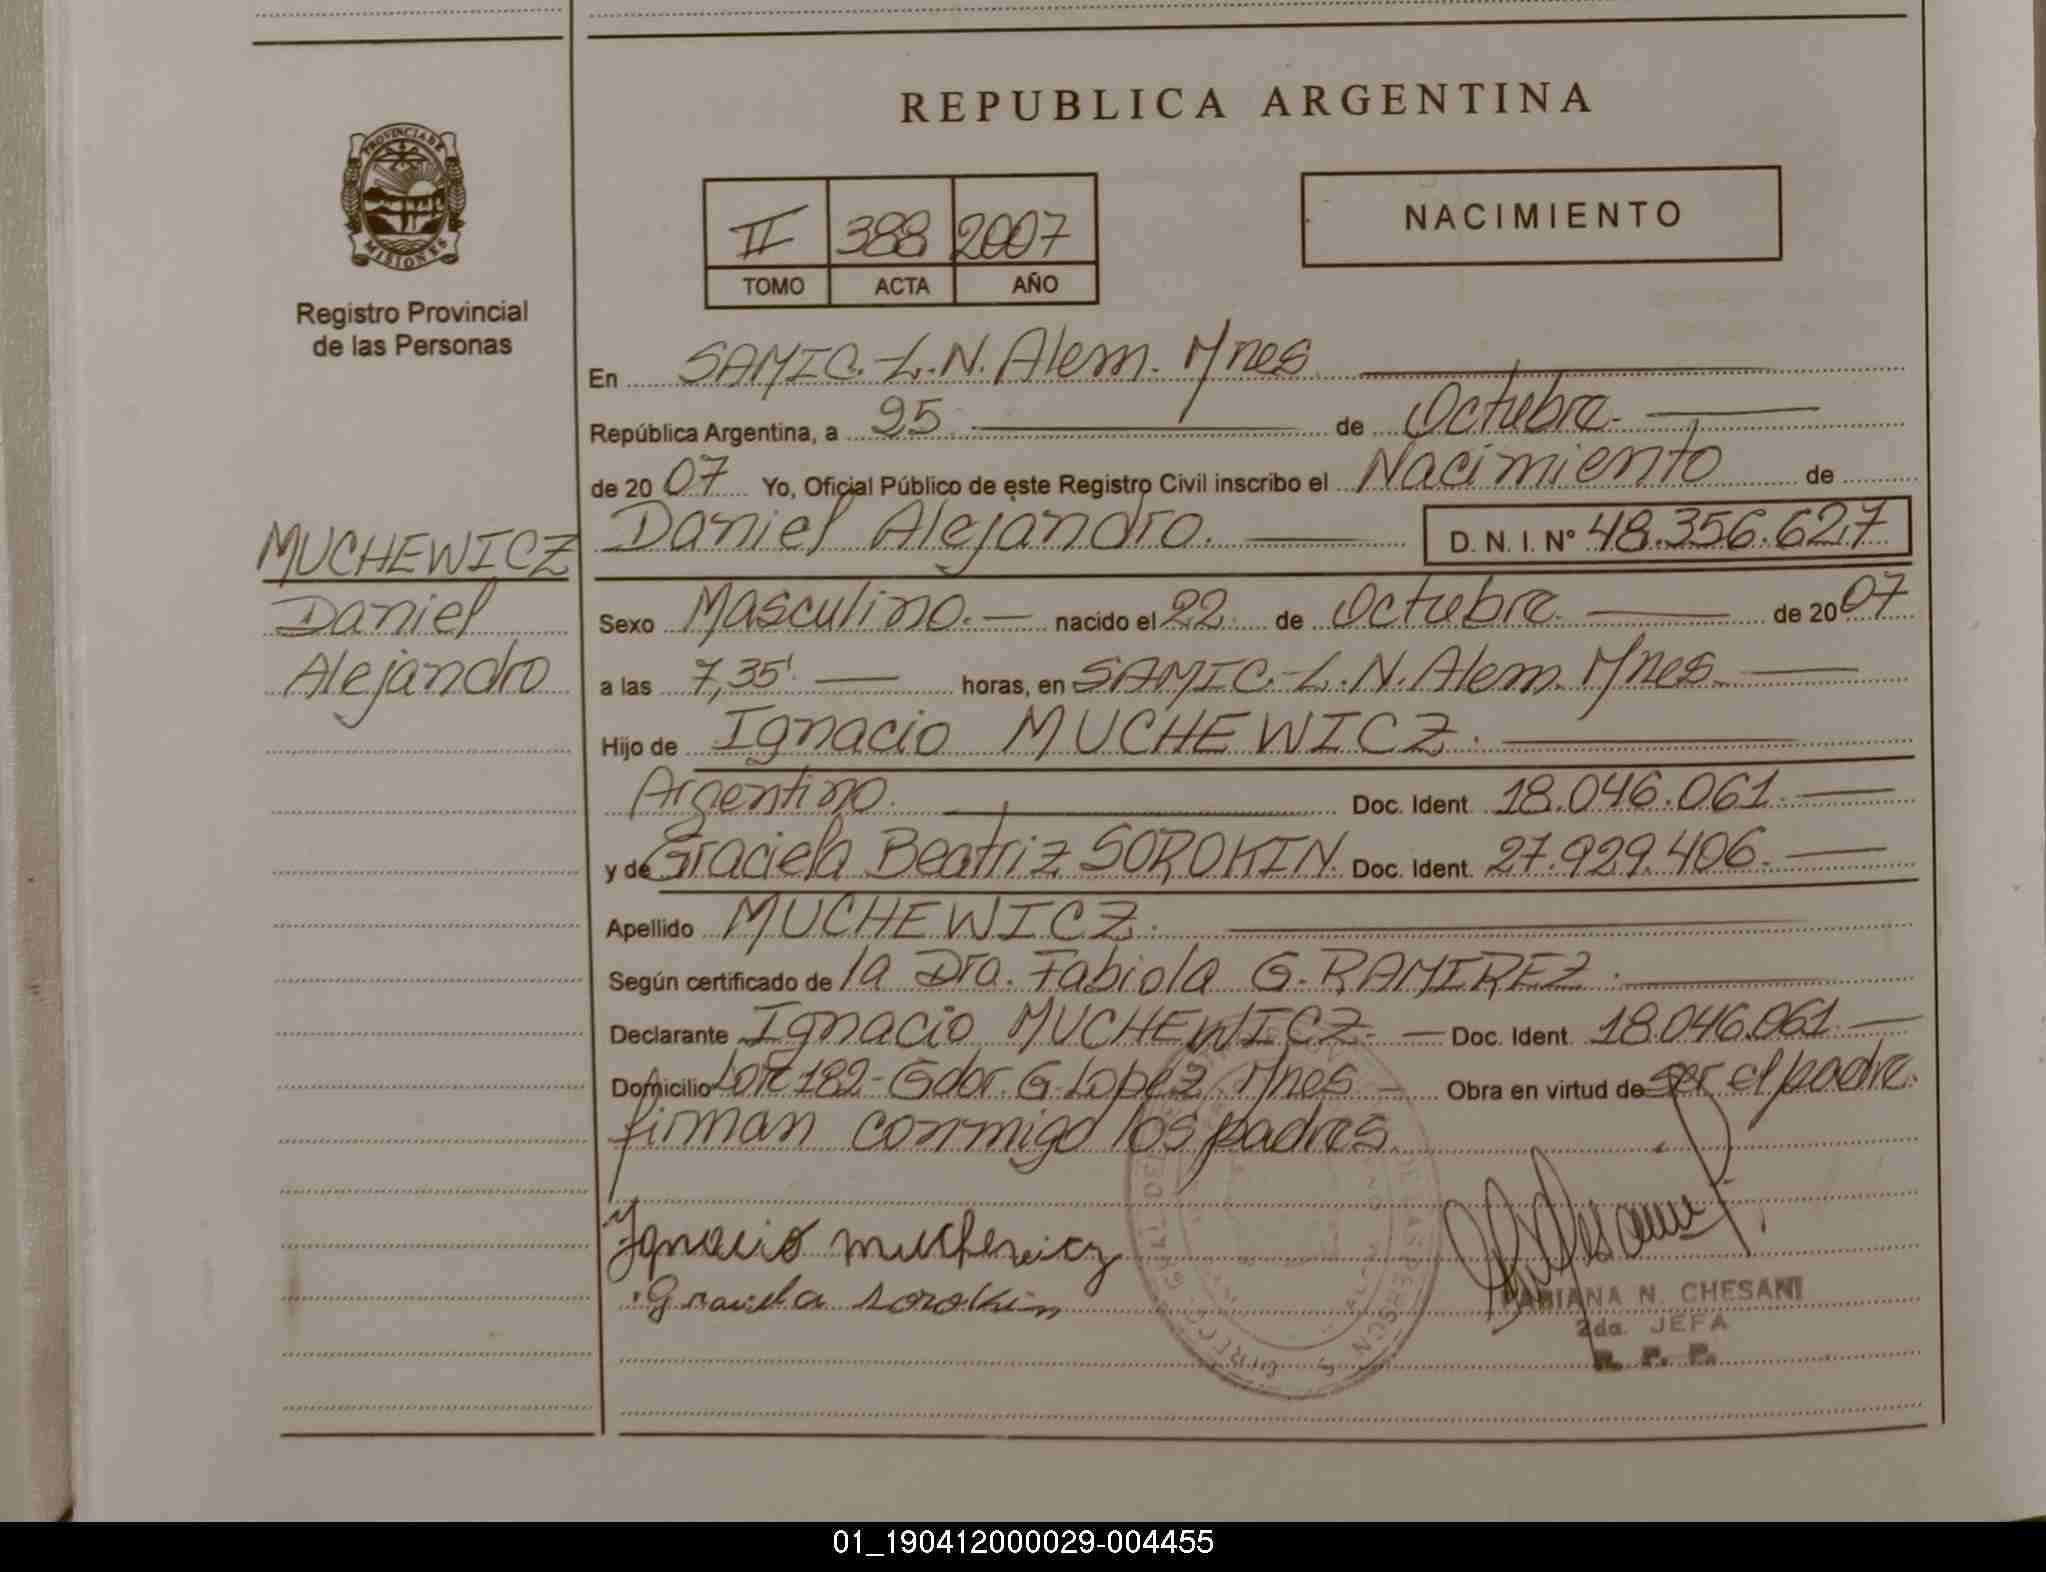 REPUBLICA ARGENTINA
PROVINCIA DE MISIONES
Registro Provincial
de las Personas
II 388 2007
TOMO ACTA AÑO
NACIMIENTO
En SAMIC.-L.N. Alem. Mnes
República Argentina, a 25 de Octubre.
de 20 07 Yo, Oficial Público de este Registro Civil inscribo el Nacimiento de
MUCHEWICZ
Daniel
Alejandro
Daniel Alejandro. D. N. I. N° 48.356.627
Sexo Masculino. nacido el 22 de Octubre de 20 07
a las 7,35' horas, en SAMIC.-L.N. Alem. Mnes
Hijo de Ignacio MUCHEWICZ.
Argentino. Doc. Ident. 18.046.061.
y de Graciela Beatriz SOROKIN. Doc. Ident. 27.929.406.
Apellido MUCHEWICZ.
Según certificado de la Dra. Fabiola G. RAMIREZ.
Declarante Ignacio MUCHEWICZ. Doc. Ident. 18.046.061.
Domicilio Lote 182-Gdor. G. Lopez. Mnes Obra en virtud de ser el padre.
firman conmigo los padres.
Ignacio Muchewicz
Graciela Sorokin
FABIANA N. CHESANI
2da. JEFA
R. P. P.
01_190412000029-004455